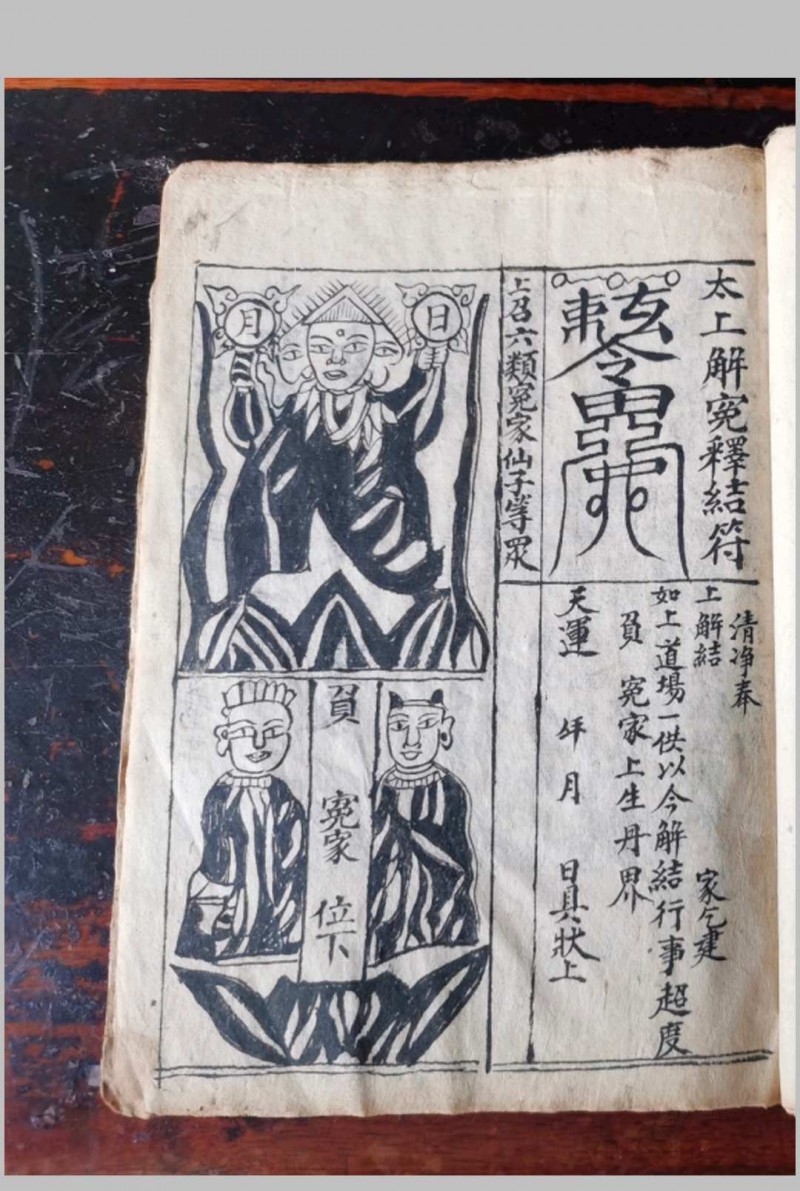 太上解冤釋結符
敕玄令
上召六類冤家仙子等眾
清净奉
上解結 家乞建
如上道場一供以今解結行事超度
負 冤家上生丹界
天運 年 月 日具狀上
日
月
負 冤家 位下